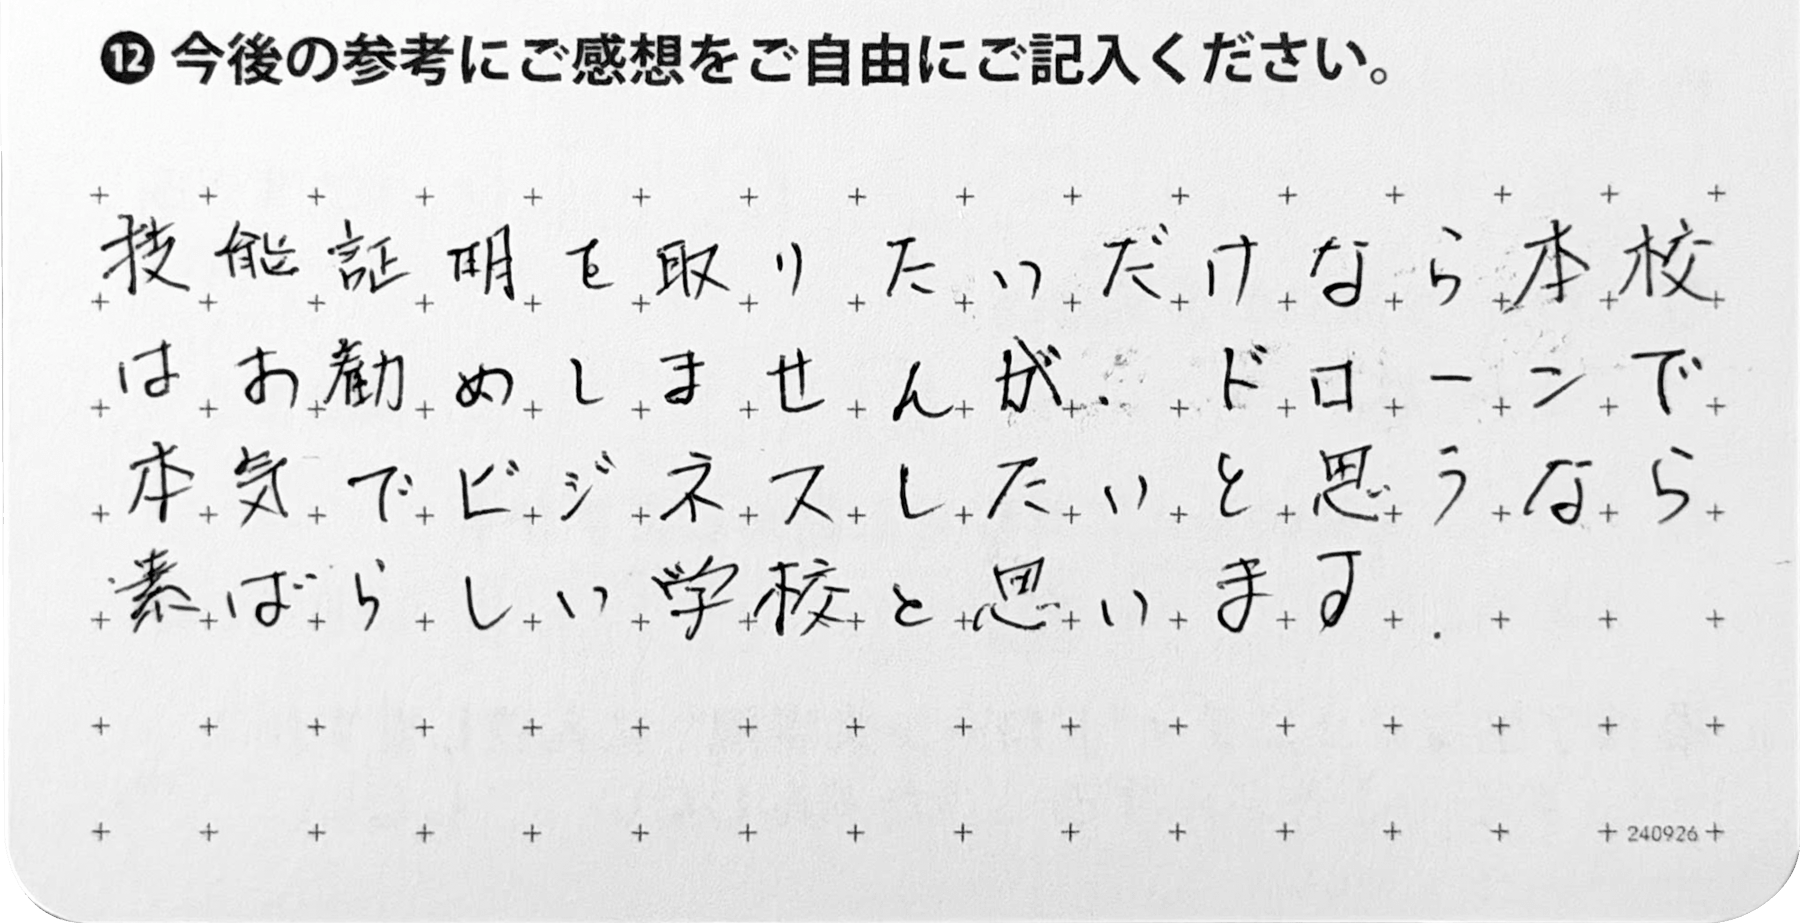 ⓬今後の参考にご感想をご自由にご記入ください。
技能証明を取りたいだけなら本校
はお勧めしませんが.ドローンで
本気でビジネスしたいと思うなら
素ばらしい学校と思います.
240926